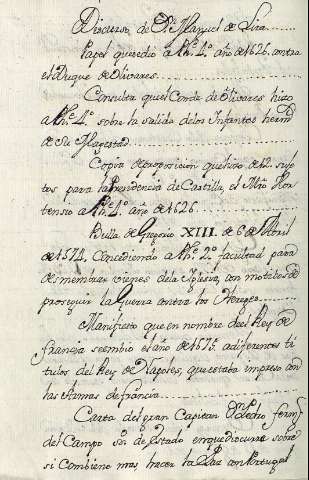 Discurso de Dn Manuel de Lira.
Papel que se dio a Ph.º 4.º año de 1626. contra
el Duque de Olivares.
Consulta que el Conde de Olivares hizo
a Ph.º 4.º sobre la salida de los Infantes herm.ºs
de Su Magestad.
Copia de proposicion que hizo de 12. suge
tos para la Presidencia de Castilla, el Mro Hor
tensio a Ph.º 4.º año de 1626.
Bulla de Gregorio XIII. de 6 de Abril
de 1574. Concediendo a Ph.º 2.º facultad para
desmembrar vienes de la Iglesia, con motibo de
proseguir la Guerra contra los Hereges.
Manifiesto que en nombre del Rey de
francia se embio el año de 1675. a diferentes ti
tulos del Rey de Napoles, que estaba impreso con
las Armas de francia.
Carta del gran Capitan Dn Pedro fern.z
del Campo Sº de Estado en que discurre sobre
si combiene mas hacer la Paz con Portugal